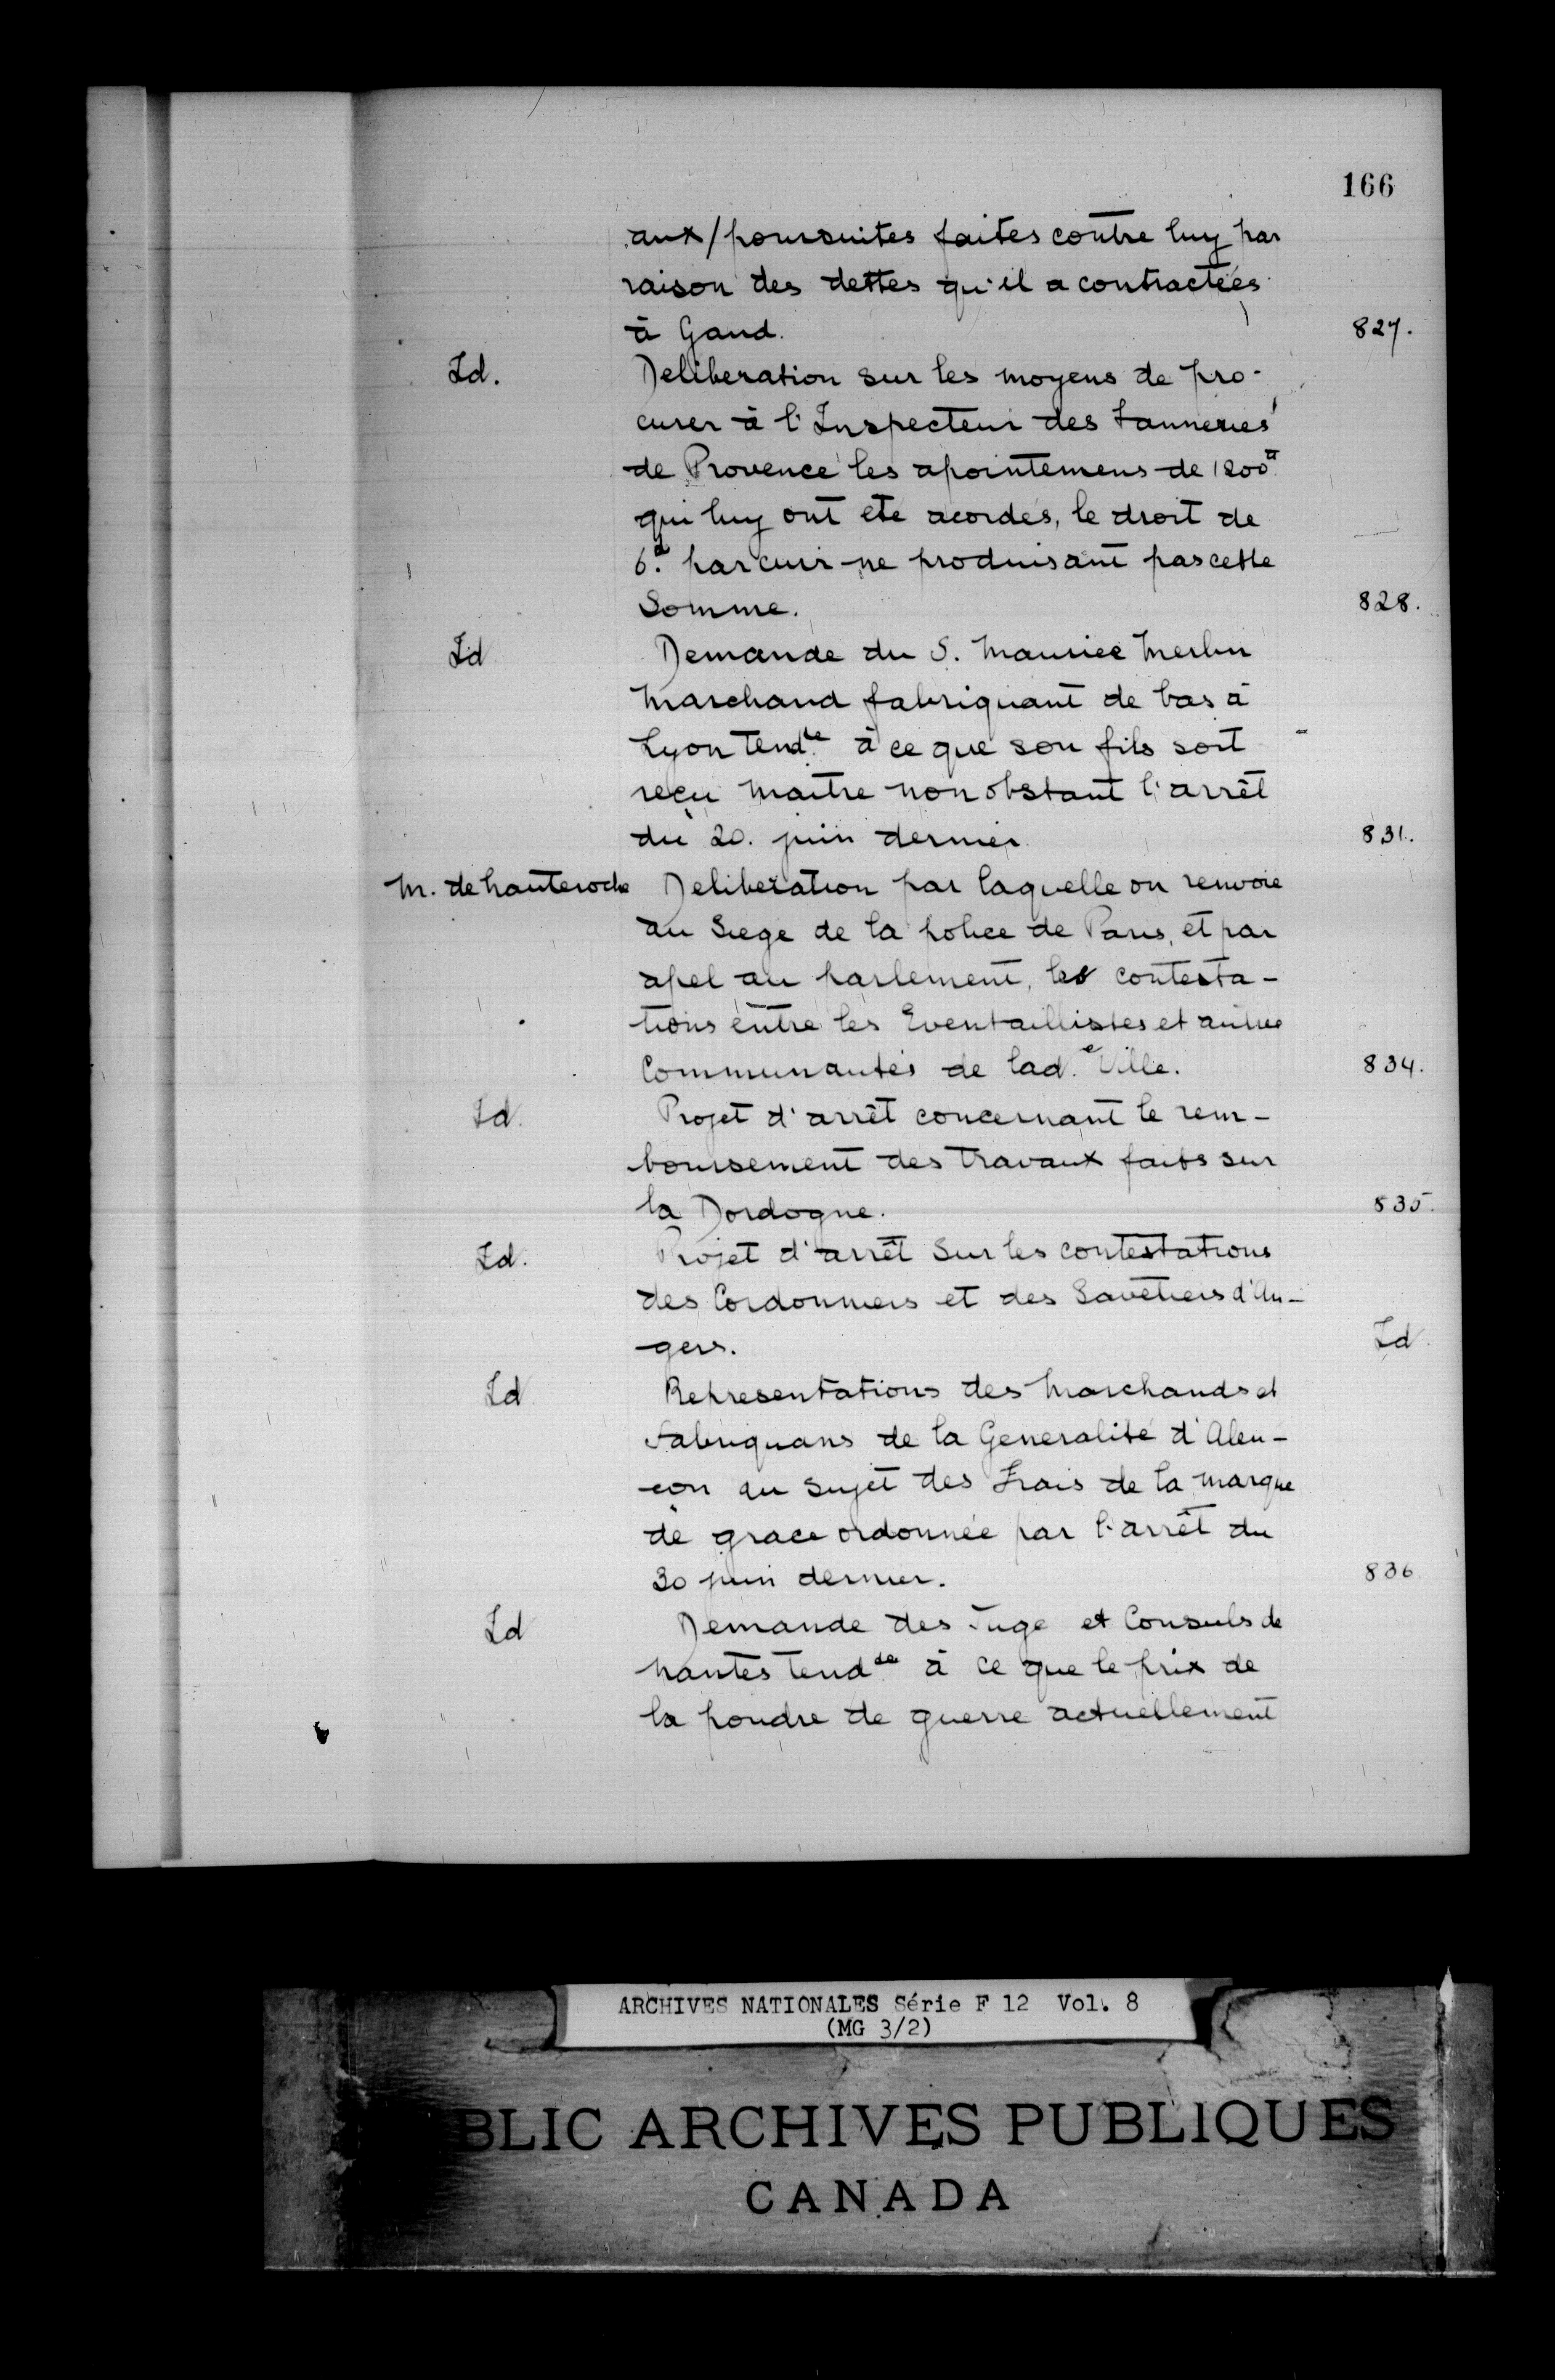 166
aux/poursuites faites contre luy par
raison des dettes qu'il a contractées
à Gand. 827.
Id. Deliberation sur les moyens de pro-
curer à l'Inspecteur des tanneries
de Provence les apointemens de 1200tt
qui luy ont ete acordés, le droit de
6.d par cuir ne produisant pas cette
Somme. 828.
Id Demande du S. Maurice Merlin
Marchand fabriquant de bas à
Lyon tend.te à ce que son fils soit
reçu Maitre non obstant l'arrêt
du 20. juin dernier 831.
M. de hauteroche Deliberation par laquelle on renvoie
au Siege de la police de Paris, et par
apel au parlement, les contesta-
tions entre les Eventaillistes et autres
Communautés de lad.e Ville. 834.
Id. Projet d'arrêt concernant le rem-
boursement des travaux faits sur
la Dordogne. 835.
Id. Projet d'arrêt Sur les contestations
des Cordonniers et des Savetiers d'An-
gers. Id.
Id Representations des Marchands et
fabriquans de la Generalité d'Alen-
çon au sujet des Frais de la marque
de grace ordonnée par l'arrêt du
30 juin dernier. 836.
Id Demande des Juge et Consuls de
Nantes tend.te à ce que le prix de
la poudre de guerre actuellement
ARCHIVES NATIONALES Série F 12 Vol. 8
(MG 3/2)
BLIC ARCHIVES PUBLIQUES
CANADA